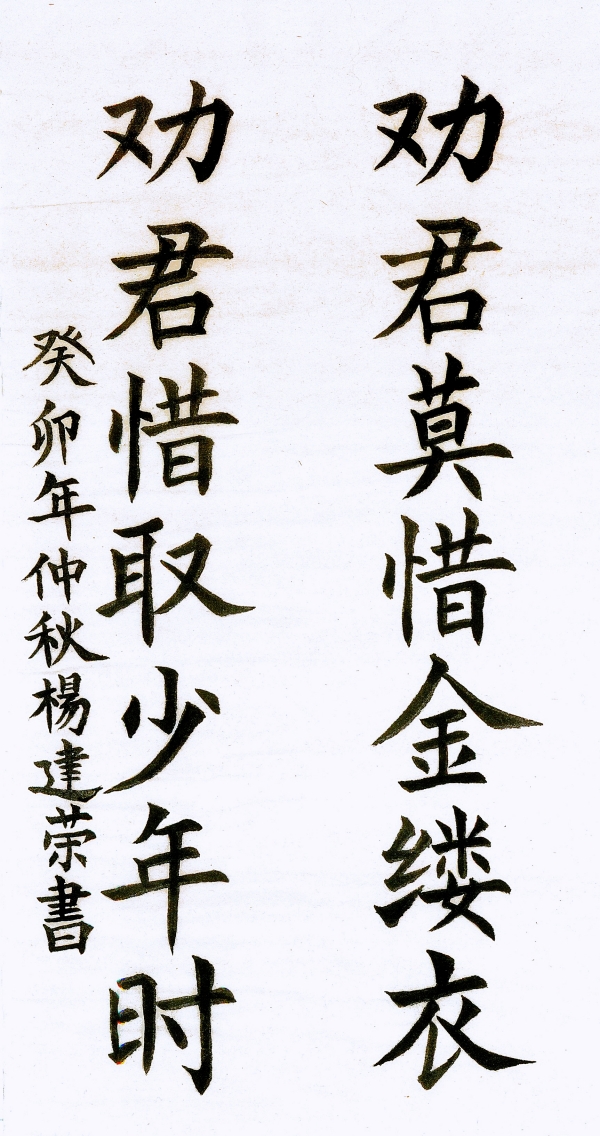 劝君莫惜金缕衣
劝君惜取少年时
癸卯年仲秋楊建荣書